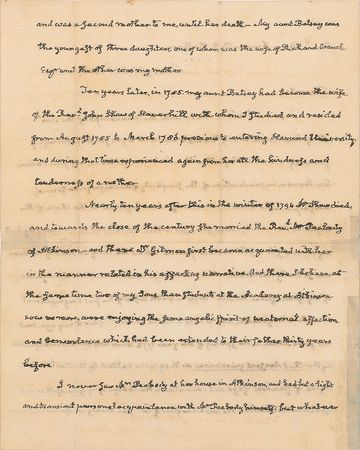 and was a second mother to me, until her death — My aunt Betsey was
the youngest of three daughters, one of whom was the wife of Richard Cranch
Esqr and the other was my mother.
Ten years later, in 1785. my aunt Betsey had become the wife
of the Revd. John Shaw of Haverhill with whom I studied and resided
from August 1785 to March 1786 previous to entering Harvard University
and during that time experienced again from her all the kindness and
tenderness of a mother
Nearly ten years after this in the winter of 1794 Mr Shaw died,
and towards the close of the century she married the Revd. Mr Peabody
of Atkinson and there Dr. Gilman first became acquainted with her
in the manner related in his affecting narrative. And there I believe at
the same time two of my Sons, then Students at the Academy at Atkinson
now no more, were enjoying the same angelic spirit of maternal affection
and benevolence which had been extended to their father thirty years
before.
I never saw Mrs Peabody at her house in Atkinson, and had but a slight
and transient personal acquaintance with Mr Peabody himself; but whatever